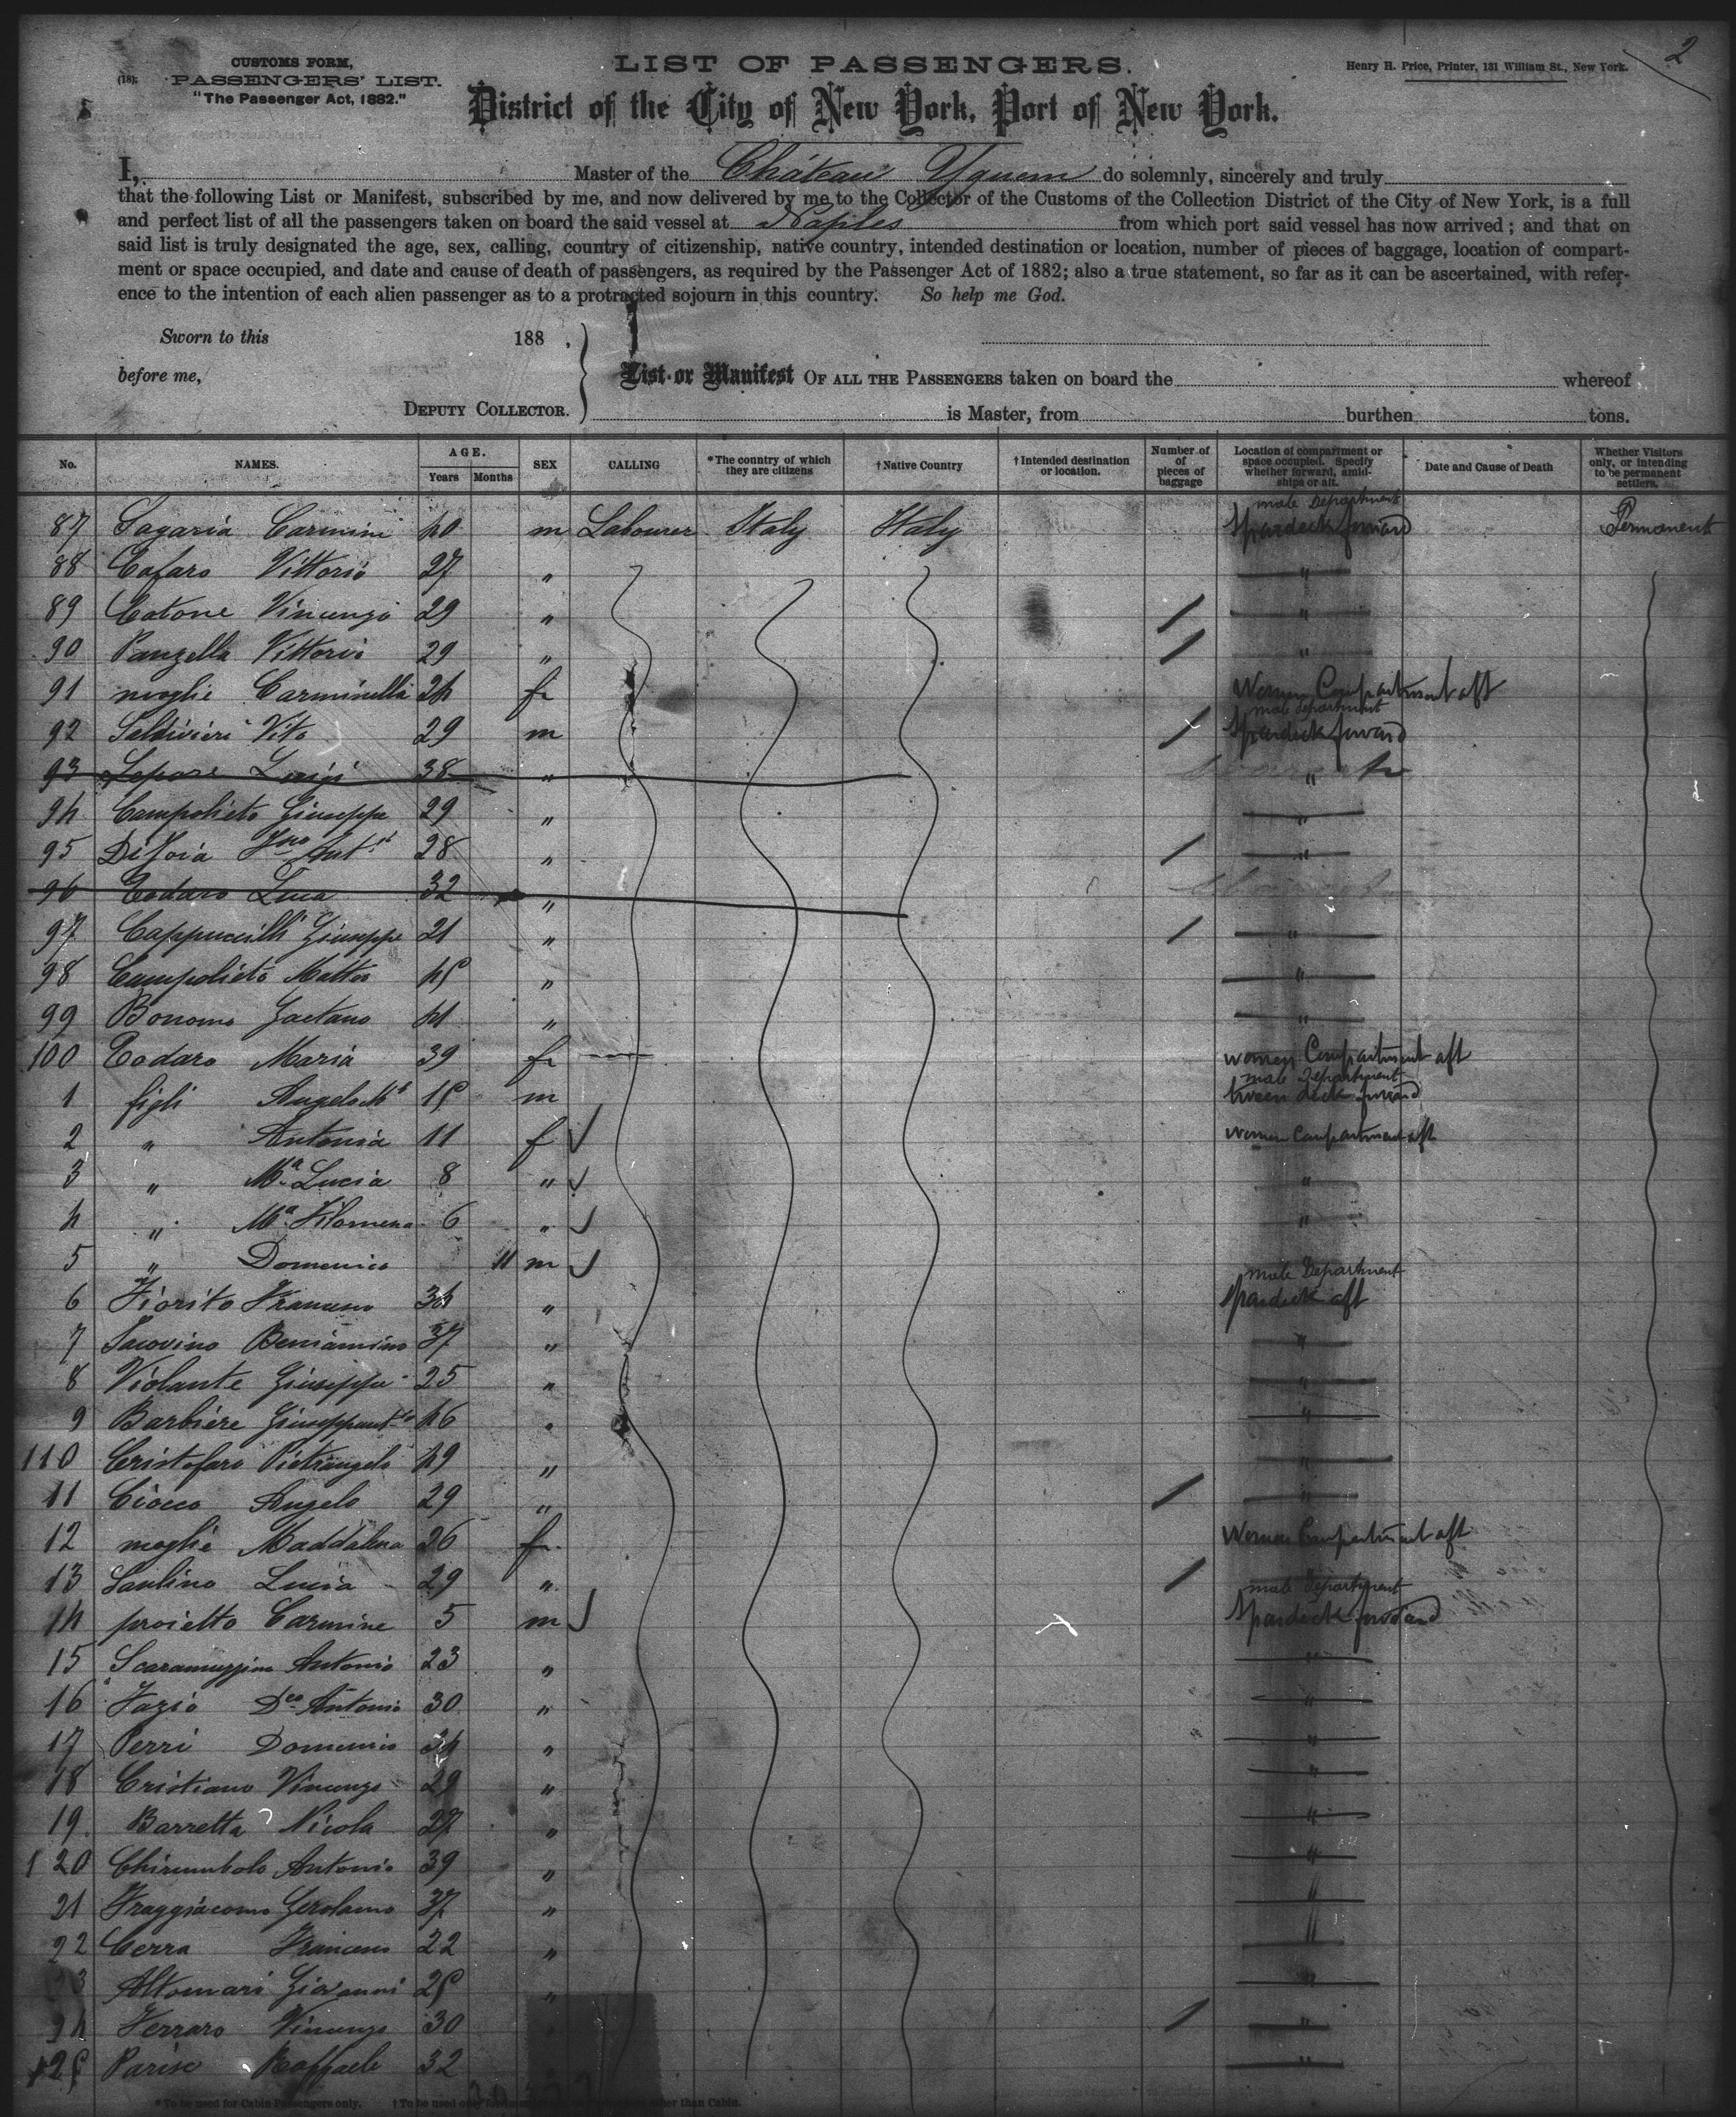 2
CUSTOMS FORM,
(18);
PASSENGERS' LIST.
"The Passenger Act, 1882."
LIST OF PASSENGERS.
Henry H. Price, Printer, 131 William St., New York.
District of the City of New York, Port of New York.
I, Master of the Château Yquem do solemnly, sincerely and truly
that the following List or Manifest, subscribed by me, and now delivered by me to the Collector of the Customs of the Collection District of the City of New York, is a full
and perfect list of all the passengers taken on board the said vessel at Naples from which port said vessel has now arrived; and that on
said list is truly designated the age, sex, calling, country of citizenship, native country, intended destination or location, number of pieces of baggage, location of compart-
ment or space occupied, and date and cause of death of passengers, as required by the Passenger Act of 1882; also a true statement, so far as it can be ascertained, with refer-
ence to the intention of each alien passenger as to a protracted sojourn in this country. So help me God.
Sworn to this 188 ,
before me,
DEPUTY COLLECTOR.
List or Manifest OF ALL THE PASSENGERS taken on board the whereof
is Master, from burthen tons.
No. NAMES. AGE. Years Months SEX CALLING *The country of which they are citizens †Native Country †Intended destination or location. Number of of pieces of baggage Location of compartment or space occupied. Specify whether forward, amid-ships or aft. Date and Cause of Death Whether Visitors only, or intending to be permanent settlers.
male Department
87 Sagaria Carmini 40 m Labourer Italy Italy Spardeck forward Permanent
88 Cafaro Vittorio 27 " "
89 Catone Vincenzo 29 " / "
90 Panzella Vittorio 29 " / "
91 moglie Carminella 24 f Women Compartment aft
male department
92 Saldivieri Vito 29 m / Spardeck forward
93 Lepore Luigi 38 " "
94 Campolieto Giuseppe 29 " "
95 Di Joia Gno Anto 28 " / "
96 Todaro Luca 32 "
97 Cappuccilli Giuseppe 21 " / "
98 Campolieto Matteo 45 " "
99 Bonomo Gaetano 41 " "
100 Todaro Maria 39 f women Compartment aft
male Department
1 figli Angelo Ma 15 m tween deck forward
2 " Antonia 11 f women Compartment aft
3 " Ma Lucia 8 " "
4 " Ma Filomena 6 " "
5 " Domenico 11 m
male Department
6 Fiorito Francesco 34 " Spardeck aft
7 Iacovino Beniamino 37 " "
8 Violante Giuseppe 25 " "
9 Barbiere Giuseppanto 46 " "
110 Cristofaro Pietrangelo 49 " "
11 Ciocco Angelo 29 " / "
12 moglie Maddalena 26 f Women Compartment aft
13 Saulino Lucia 29 " /
male Department
14 proietto Carmine 5 m Spardeck forward
15 Scaramuzzino Antonio 23 " "
16 Fazio Dco Antonio 30 " "
17 Perri Domenico 34 " "
18 Cristiano Vincenzo 29 " "
19 Barretta Nicola 27 " "
120 Chirumbolo Antonio 39 " "
21 Fraggiacomo Gerolamo 37 " "
22 Cerra Francesco 22 " "
23 Altomari Giovanni 25 " "
24 Ferraro Vincenzo 30 / "
125 Parise Raffaele 32 "
*To be used for Cabin Passengers only. †To be used only for other than Cabin.